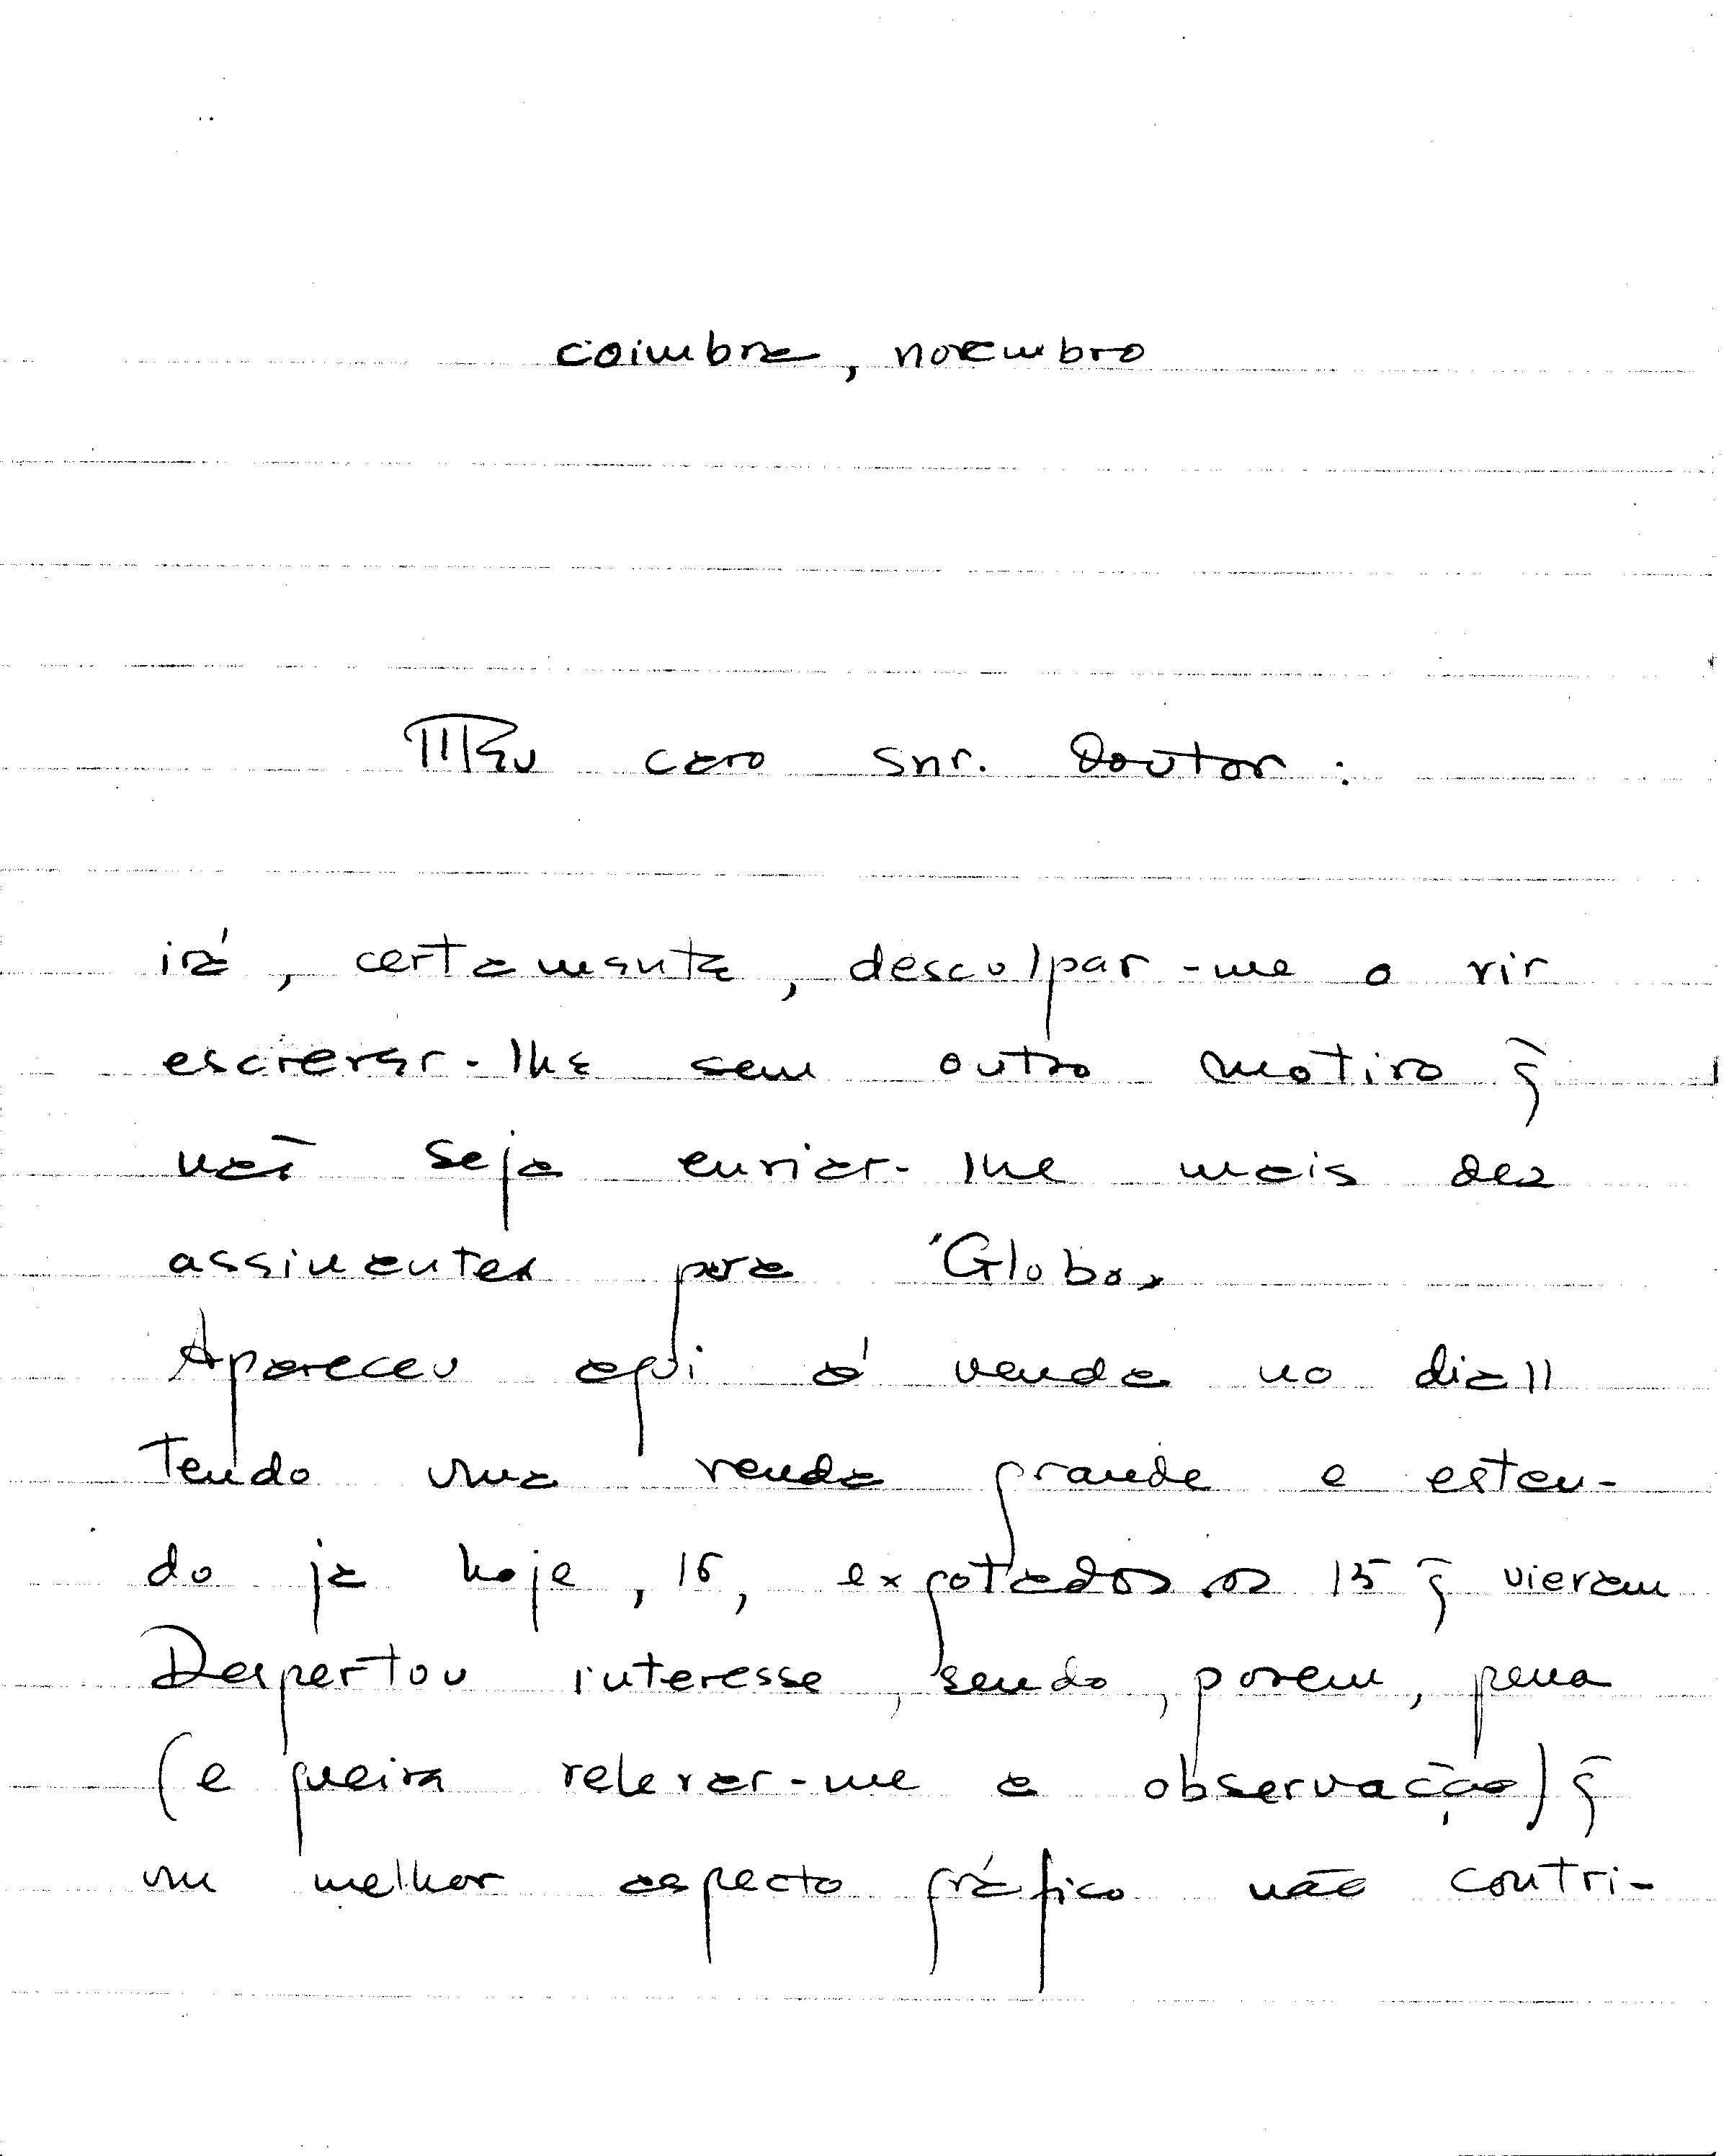 coimbra, novembro
Meu caro Snr. Doutor:
irá, certamente, desculpar-me o vir
escrever-lhe sem outro motivo q̃
não seja enviar-lhe mais dez
assinantes para "Globo"
Apareceu aqui á venda no dia 11
tendo uma venda grande e estan-
do já hoje, 16, exgotados os 15 q̃ vieram
Despertou interesse, sendo, porem, pena
(e queira relevar-me a observação) q̃
um melhor aspecto gráfico não contri-